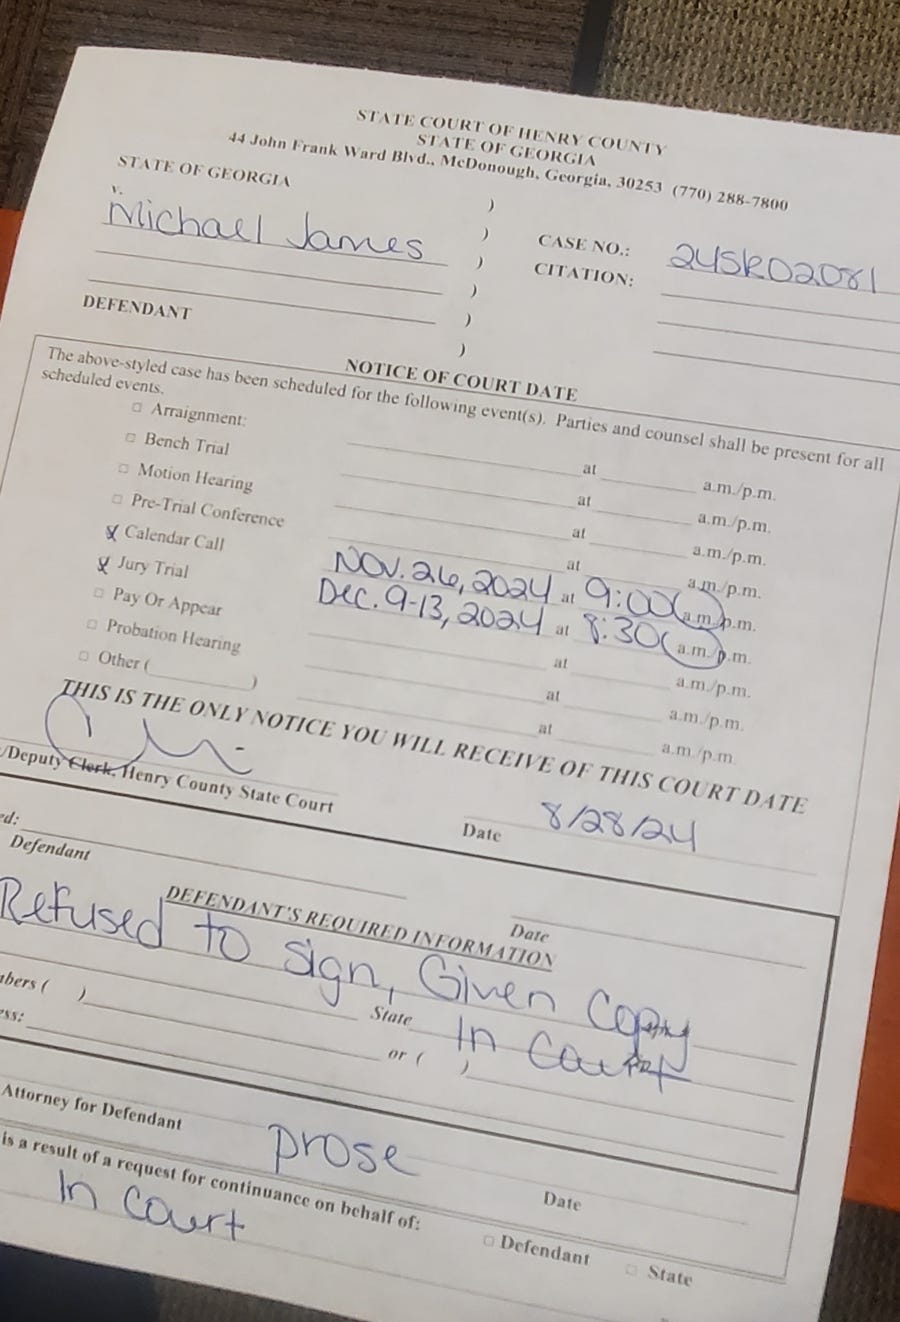 STATE COURT OF HENRY COUNTY
STATE OF GEORGIA
44 John Frank Ward Blvd., McDonough, Georgia, 30253 (770) 288-7800
STATE OF GEORGIA )
v. )
Michael James ) CASE NO.: 24SR02081
) CITATION:
)
DEFENDANT )
NOTICE OF COURT DATE
The above-styled case has been scheduled for the following event(s). Parties and counsel shall be present for all
scheduled events.
Arraignment: at a.m./p.m.
Bench Trial at a.m./p.m.
Motion Hearing at a.m./p.m.
Pre-Trial Conference at a.m./p.m.
Calendar Call Nov. 26, 2024 at 9:00 a.m./p.m.
Jury Trial Dec. 9-13, 2024 at 8:30 a.m./p.m.
Pay Or Appear at a.m./p.m.
Probation Hearing at a.m./p.m.
Other ( ) at a.m./p.m.
THIS IS THE ONLY NOTICE YOU WILL RECEIVE OF THIS COURT DATE
/Deputy Clerk, Henry County State Court
Date 8/28/24
ed:
Defendant Date
DEFENDANT'S REQUIRED INFORMATION
Refused to sign, Given Copy
In Court
State
nbers ( ) or ( )
ess:
Attorney for Defendant prose Date
is a result of a request for continuance on behalf of: Defendant State
In Court